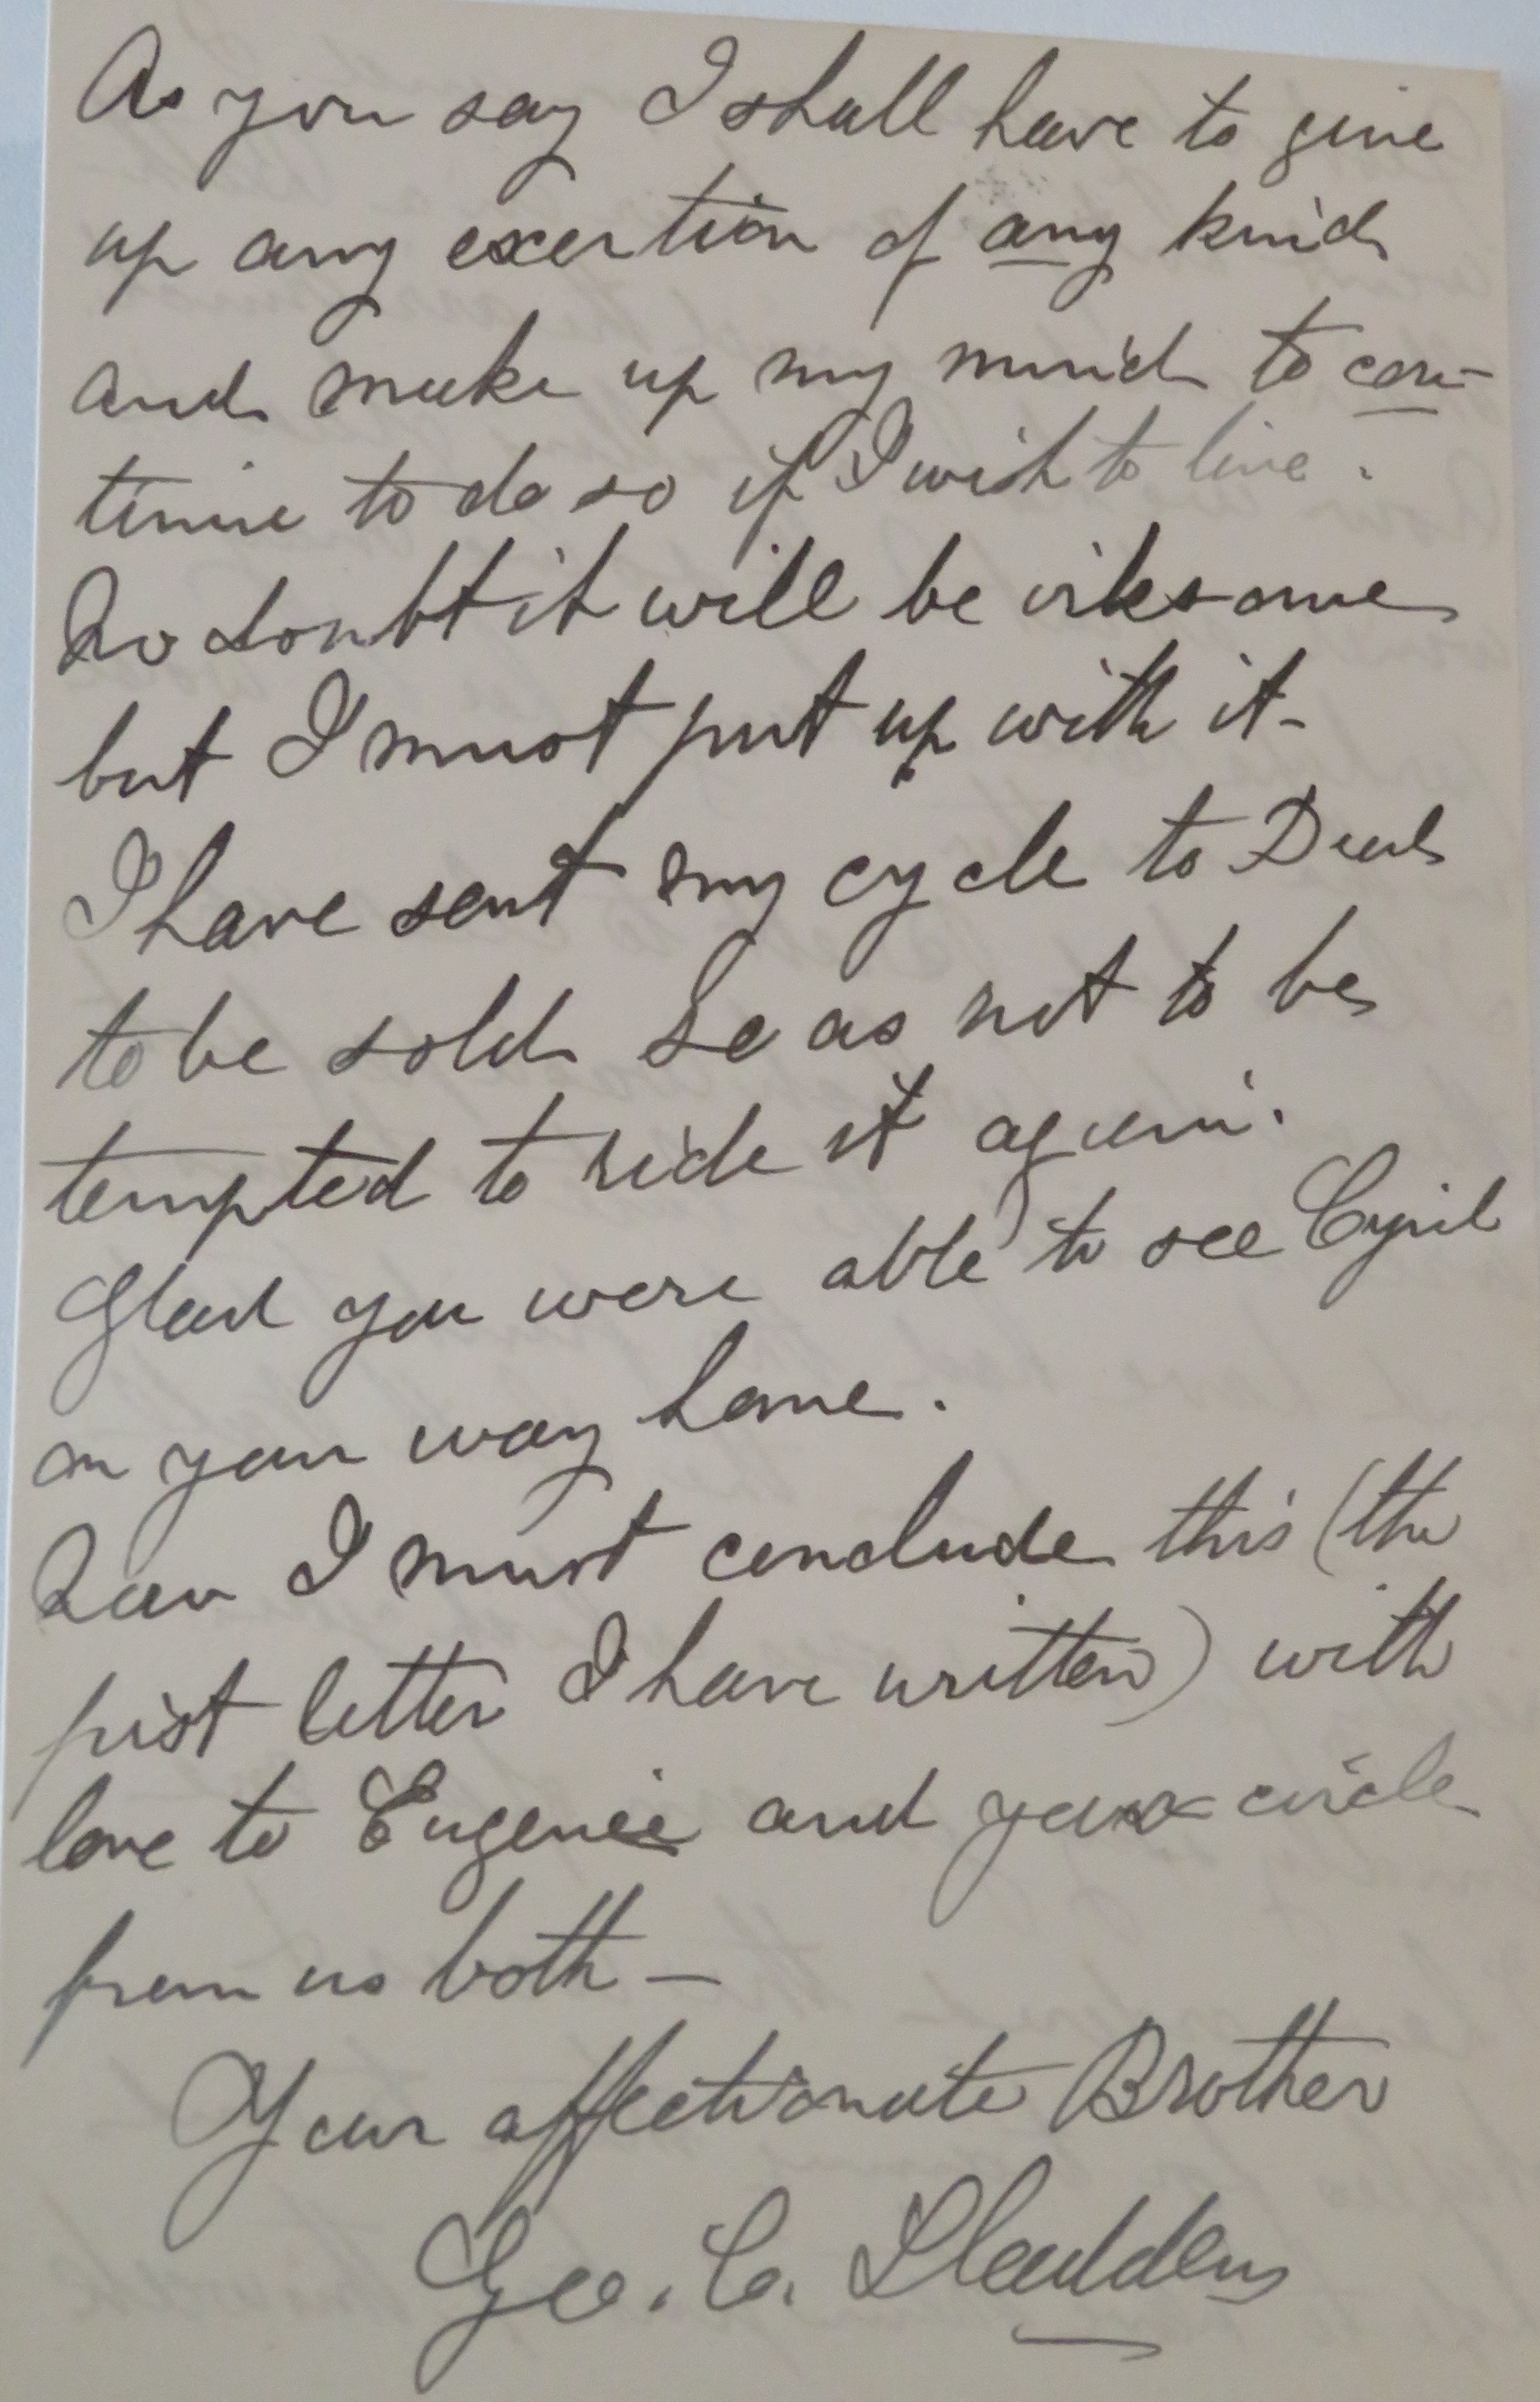 As you say I shall have to give
up any exertion of any kind
and make up my mind to con-
tinue to do so if I wish to live.
No doubt it will be irksome
but I must put up with it -
I have sent my cycle to Deal
to be sold so as not to be
tempted to ride it again.
Glad you were able to see Cyril
on your way home.
Now I must conclude this (the
first letter I have written) with
love to Eugenie and your circle
from us both —
Your affectionate Brother
Geo. C.